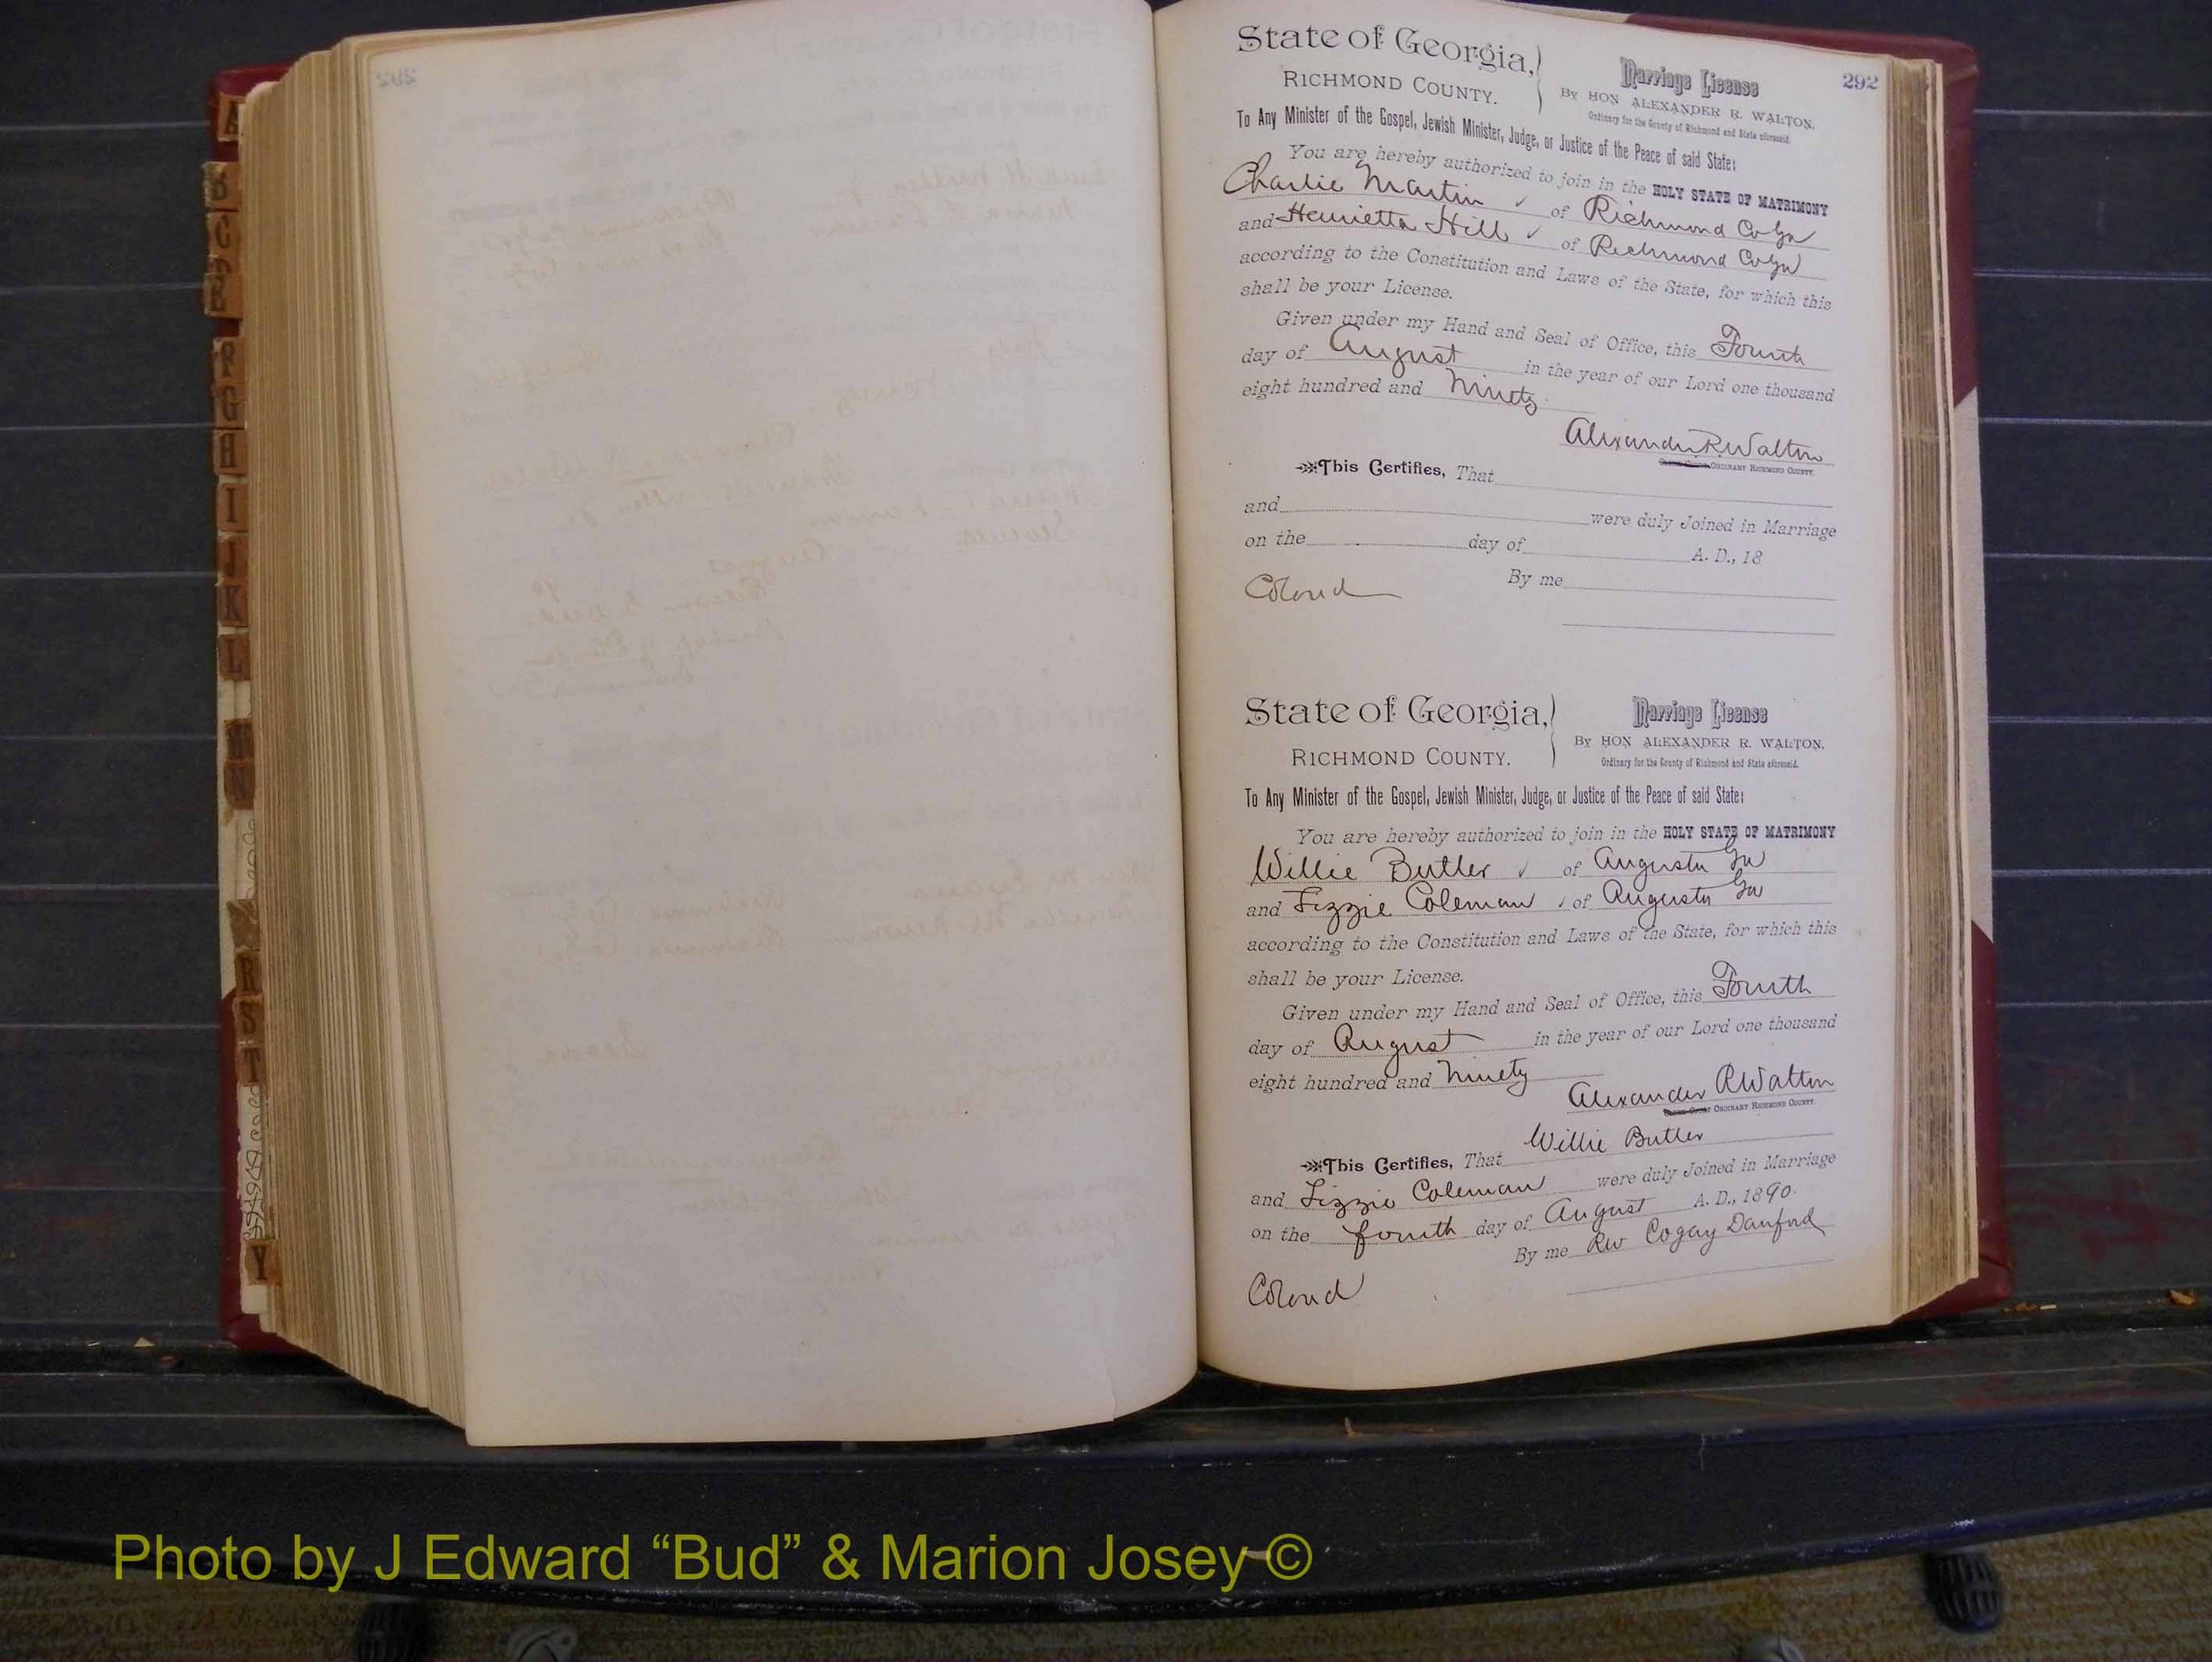 292
State of Georgia,
RICHMOND COUNTY.
Marriage License
By HON ALEXANDER R. WALTON.
Ordinary for the County of Richmond and State aforesaid.
To Any Minister of the Gospel, Jewish Minister, Judge, or Justice of the Peace of said State:
You are hereby authorized to join in the HOLY STATE OF MATRIMONY
Charlie Martin ✓ of Richmond Co Ga
and Henrietta Hill ✓ of Richmond Co Ga
according to the Constitution and Laws of the State, for which this
shall be your License.
Given under my Hand and Seal of Office, this Fourth
day of August in the year of our Lord one thousand
eight hundred and Ninety
Alexander R Walton
ORDINARY RICHMOND COUNTY.
This Certifies, That
and were duly Joined in Marriage
on the day of A. D., 18
By me
Colored
State of Georgia,
RICHMOND COUNTY.
Marriage License
By HON ALEXANDER R. WALTON.
Ordinary for the County of Richmond and State aforesaid.
To Any Minister of the Gospel, Jewish Minister, Judge, or Justice of the Peace of said State:
You are hereby authorized to join in the HOLY STATE OF MATRIMONY
Willie Butler ✓ of Augusta Ga
and Lizzie Coleman ✓ of Augusta Ga
according to the Constitution and Laws of the State, for which this
shall be your License.
Given under my Hand and Seal of Office, this Fourth
day of August in the year of our Lord one thousand
eight hundred and Ninety
Alexander R Walton
ORDINARY RICHMOND COUNTY.
This Certifies, That Willie Butler
and Lizzie Coleman were duly Joined in Marriage
on the fourth day of August A. D., 1890.
By me Rev Cogay Danford
Colored
A
B
C
D
E
F
G
H
I
J
K
L
M
N
R
S
T
Y
Photo by J Edward “Bud” & Marion Josey ©